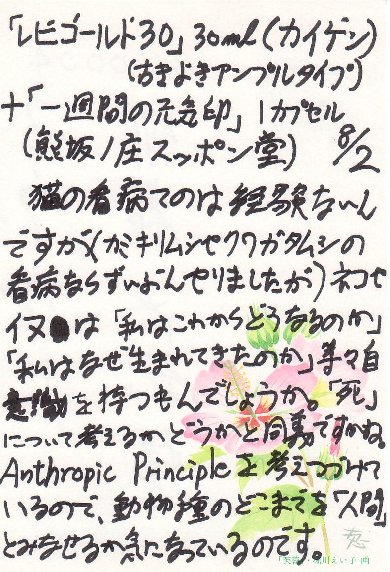 「レビゴールド30」30ml(カイゲン)
(古きよきアンプルタイプ)
+「一週間の元気印」1カプセル
(熊坂ノ庄スッポン堂) 8/2
猫の看病てのは経験ないん
ですが(カミキリムシやクワガタムシの
看病ならずいぶんやりましたが)ネコや
イヌは「私はこれからどうなるのか」
「私はなぜ生まれてきたのか」等々自
意識を持つもんでしょうか。「死」
について考えるかどうかと同義ですかね
Anthropic Principleを考えつづけて
いるので、動物種のどこまでを「人間」
とみなせるか気になっているのです。
「芙蓉」・堀川えい子 画